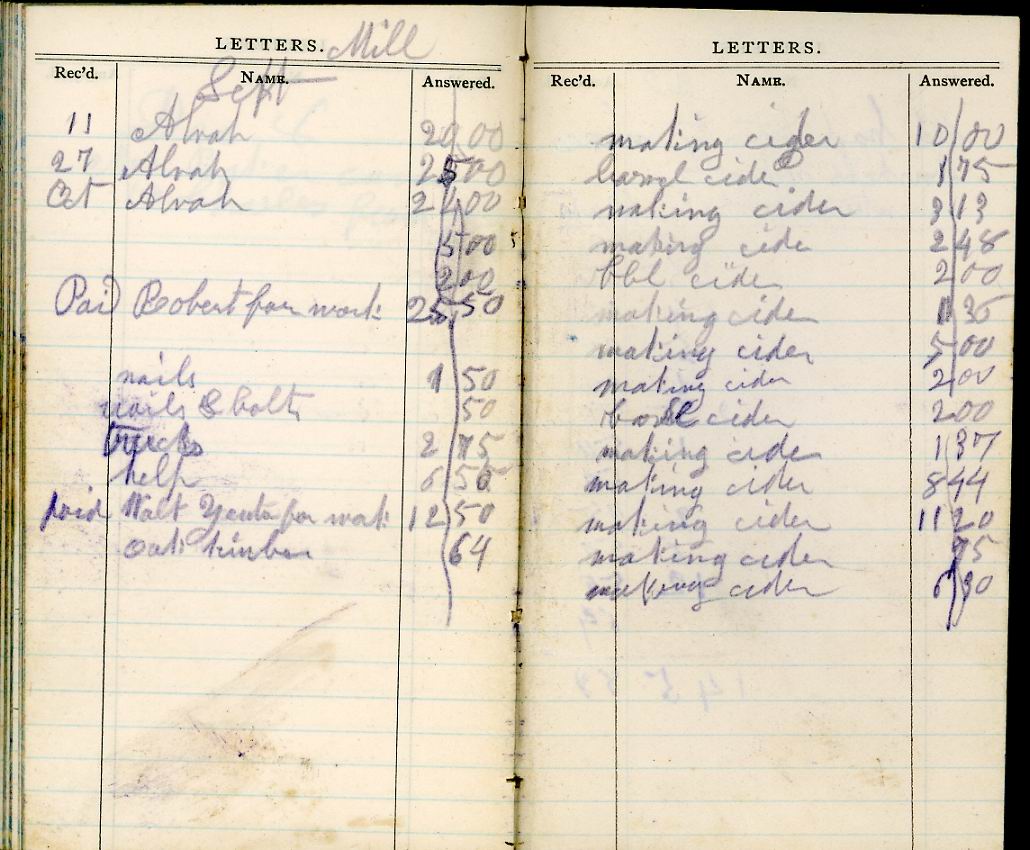 LETTERS. Mill
Rec'd. NAME. Answered.
Sept
11 Alvah 20 00
27 Alvah 25 00
Oct Alvah 2 00
5 00
2 00
Paid Robert for work 25 50
nails 1 50
nails & bolts 50
trucks 2 75
help 6 50
paid Walt for work 12 50
oak timber 64
LETTERS.
Rec'd. NAME. Answered.
making cider 10 00
barrel cider 1 75
making cider 3 13
making cide 2 48
bbl cider 2 00
making cider 1 36
making cider 5 00
making cider 2 00
cider 2 00
making cider 1 37
making cider 8 44
making cider 11 20
making cider 75
making cider 6 30